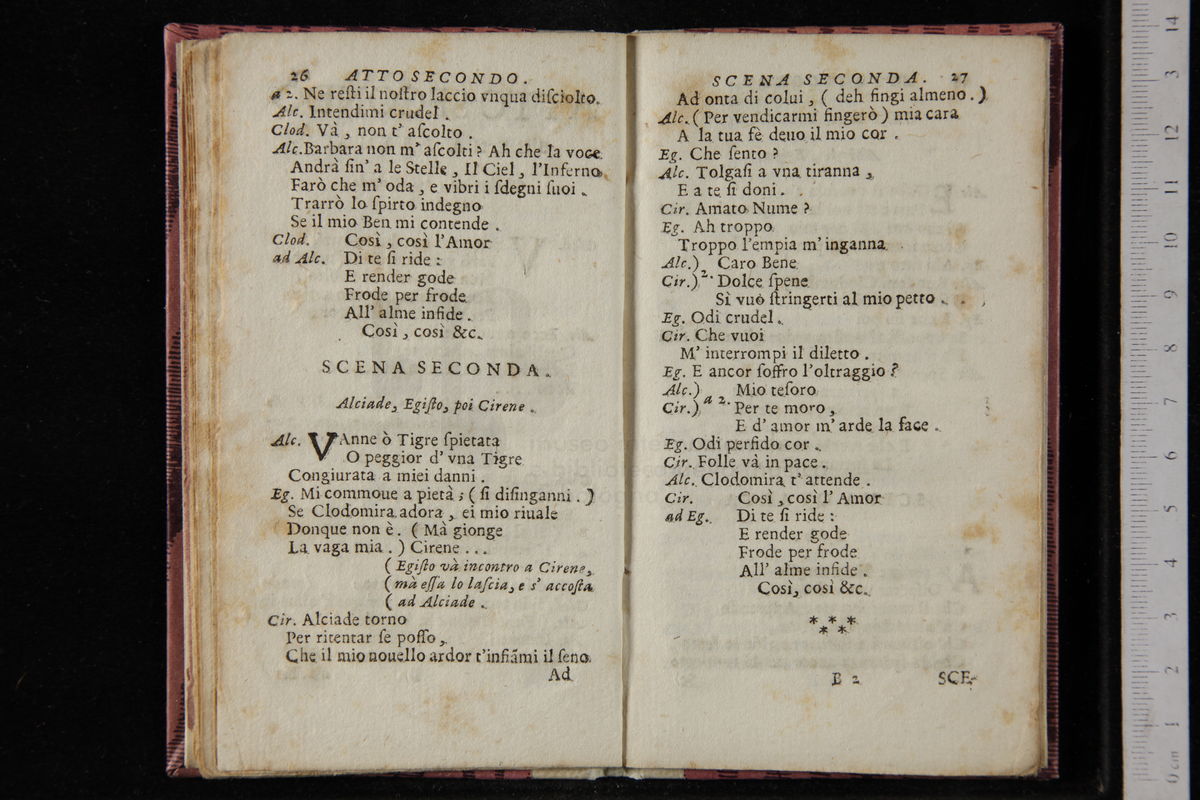 26 ATTO SECONDO.
a 2. Ne reſti il noſtro laccio vnqua diſciolto.
Alc. Intendimi crudel.
Clod. Và, non t' aſcolto.
Alc. Barbara non m' aſcolti? Ah che la voce
Andrà ſin' a le Stelle, Il Ciel, l'Inferno
Farò che m' oda, e vibri i ſdegni ſuoi.
Trarrò lo ſpirto indegno
Se il mio Ben mi contende.
Clod. Così, così l'Amor
ad Alc. Di te ſi ride:
E render gode
Frode per frode
All' alme infide.
Così, così &c.
SCENA SECONDA.
Alciade, Egiſto, poi Cirene.
Alc. VAnne ò Tigre ſpietata
O peggior d' vna Tigre
Congiurata a miei danni.
Eg. Mi commoue a pietà; (ſi diſinganni.)
Se Clodomira adora, ei mio riuale
Donque non è. (Mà gionge
La vaga mia.) Cirene...
(Egiſto và incontro a Cirene,
(mà eſſa lo laſcia, e s' accoſta
(ad Alciade.
Cir. Alciade torno
Per ritentar ſe poſſo,
Che il mio nouello ardor t'infiãmi il ſeno
Ad
SCENA SECONDA. 27
Ad onta di colui, (deh fingi almeno.)
Alc. (Per vendicarmi fingerò) mia cara
A la tua fè deuo il mio cor.
Eg. Che ſento?
Alc. Tolgaſi a vna tiranna,
E a te ſi doni.
Cir. Amato Nume?
Eg. Ah troppo
Troppo l'empia m'inganna
Alc.) Caro Bene
Cir.) 2. Dolce ſpene
Sì vuò ſtringerti al mio petto.
Eg. Odi crudel.
Cir. Che vuoi
M' interrompi il diletto.
Eg. E ancor ſoffro l'oltraggio?
Alc.) Mio teſoro
Cir.) a 2. Per te moro,
E d' amor m' arde la face.
Eg. Odi perfido cor.
Cir. Folle và in pace.
Alc. Clodomira t' attende.
Cir. Così, così l' Amor
ad Eg. Di te ſi ride:
E render gode
Frode per frode
All' alme infide.
Così, così &c.
* * *
* *
B 2 SCE-